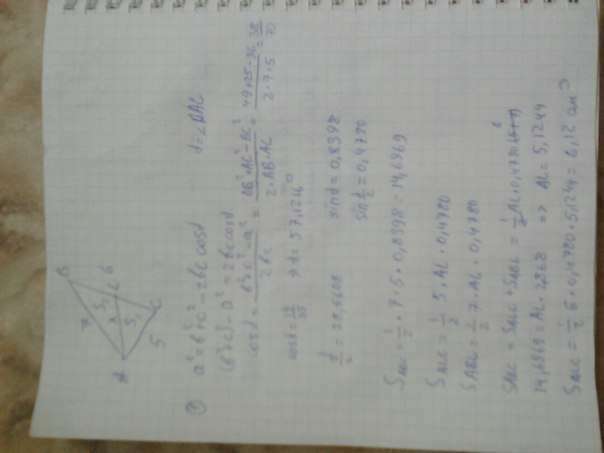 B
7
6
A
L
5
C
① a² = b² + c² - 2bc cosα α = ∠BAC
(b² + c²) - a² = 2bc cosα
cosα = (b² + c² - a²) / 2bc = (AB² + AC² - BC²) / 2·AB·AC = (49 + 25 - 36) / 2·7·5 = 38/70
cosα = 19/35
α/2 = 28,5608 sinα = 0,8398
sin α/2 = 0,4780
S_ABC = 1/2 · 7 · 5 · 0,8398 = 14,6969
S_ALC = 1/2 5 · AL · 0,4780
S_ABL = 1/2 7 · AL · 0,4780
S_ABC = S_ALC + S_ABL = 1/2 AL · 0,4780
14,6969 = AL · 2,868 => AL = 5,1244